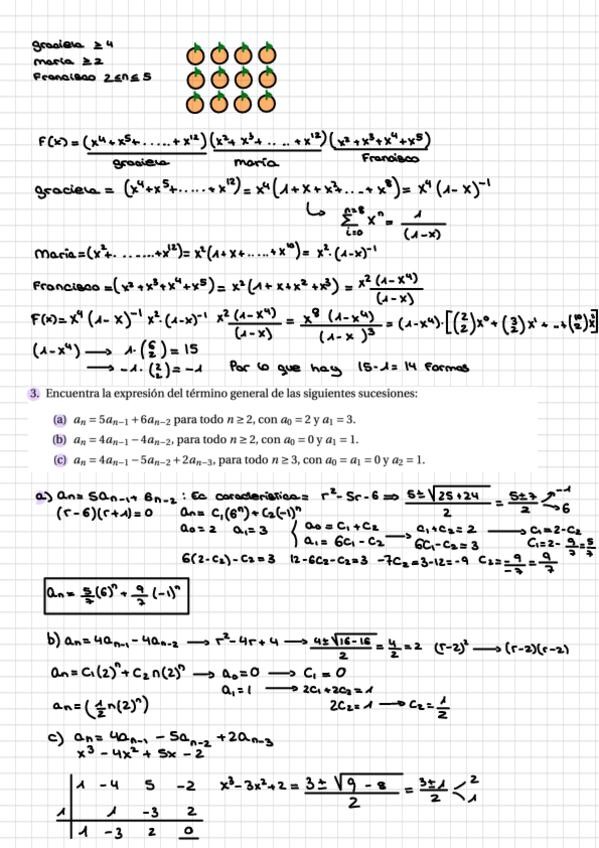 graciela ≥ 4
maría ≥ 2
Francisco 2≤n≤5
F(x) = (x⁴+x⁵+.....+x¹²)(x²+x³+.....+x¹²)(x²+x³+x⁴+x⁵)
graciela maría Francisco
graciela = (x⁴+x⁵+.....+x¹²) = x⁴(1+x+x²+...+x⁸) = x⁴(1-x)⁻¹
↳ ∑_{i=0}^{n=8} xⁿ = 1/(1-x)
maría = (x²+.......+x¹²) = x²(1+x+.....+x¹⁰) = x²·(1-x)⁻¹
Francisco = (x²+x³+x⁴+x⁵) = x²(1+x+x²+x³) = x²(1-x⁴)/(1-x)
F(x) = x⁴(1-x)⁻¹ x²·(1-x)⁻¹ x²(1-x⁴)/(1-x) = x⁸(1-x⁴)/(1-x)³ = (1-x⁴)·[(2/2)x⁰+(3/2)x¹+...+
(1-x⁴) → 1·(6/2) = 15
→ -1·(2/2) = -1 Por lo que hay 15-1=14 formas
3. Encuentra la expresión del término general de las siguientes sucesiones:
(a) aₙ = 5aₙ₋₁ + 6aₙ₋₂ para todo n ≥ 2, con a₀ = 2 y a₁ = 3.
(b) aₙ = 4aₙ₋₁ − 4aₙ₋₂, para todo n ≥ 2, con a₀ = 0 y a₁ = 1.
(c) aₙ = 4aₙ₋₁ − 5aₙ₋₂ + 2aₙ₋₃, para todo n ≥ 3, con a₀ = a₁ = 0 y a₂ = 1.
a) aₙ = 5aₙ₋₁ + 6aₙ₋₂ : Ec característica = r²-5r-6 ⇒ (5±√(25+24))/2 = (5±7)/2 ↗ -1 ↘ 6
(r-6)(r+1)=0 aₙ = C₁(6ⁿ)+C₂(-1)ⁿ
a₀=2 a₁=3 { a₀ = C₁+C₂ → C₁+C₂ = 2 → C₁=2-C₂
a₁ = 6C₁-C₂ 6C₁-C₂=3 C₁=2-9/7=5/7
6(2-C₂)-C₂=3 12-6C₂-C₂=3 -7C₂=3-12=-9 C₂=-9/-7=9/7
aₙ = 5/7 (6)ⁿ + 9/7 (-1)ⁿ
b) aₙ = 4aₙ₋₁ - 4aₙ₋₂ → r²-4r+4 → (4±√(16-16))/2 = 4/2 = 2 (r-2)² → (r-2)(r-2)
aₙ = C₁(2)ⁿ + C₂n(2)ⁿ → a₀=0 → C₁ = 0
a₁=1 → 2C₁+2C₂=1
aₙ = (1/2 n(2)ⁿ) 2C₂=1 → C₂=1/2
c) aₙ = 4aₙ₋₁ - 5aₙ₋₂ + 2aₙ₋₃
x³ - 4x² + 5x - 2
1 -4 5 -2 x³-3x²+2 = (3±√(9-8))/2 = (3±1)/2 < 2 1
1 1 -3 2
1 -3 2 0